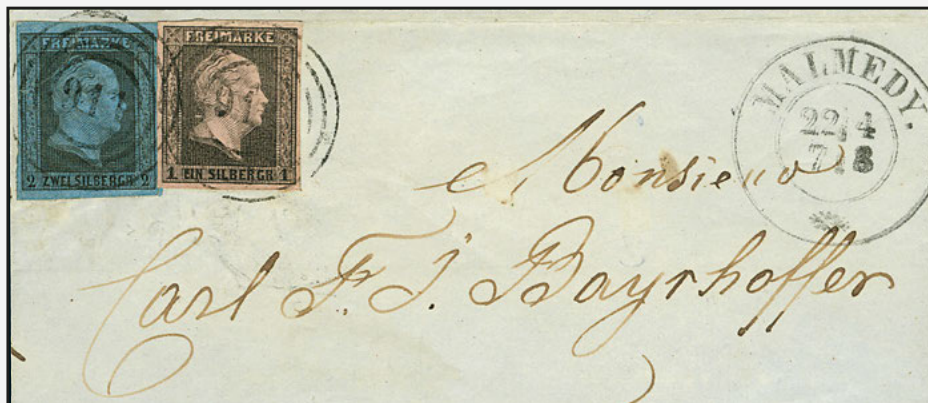 FREIMARKE
2 ZWEI SILBERGR. 2
FREIMARKE
1 EIN SILBERGR. 1
MALMEDY.
22 4
7 8
Monsieur
Carl F. J. Bayrhoffer